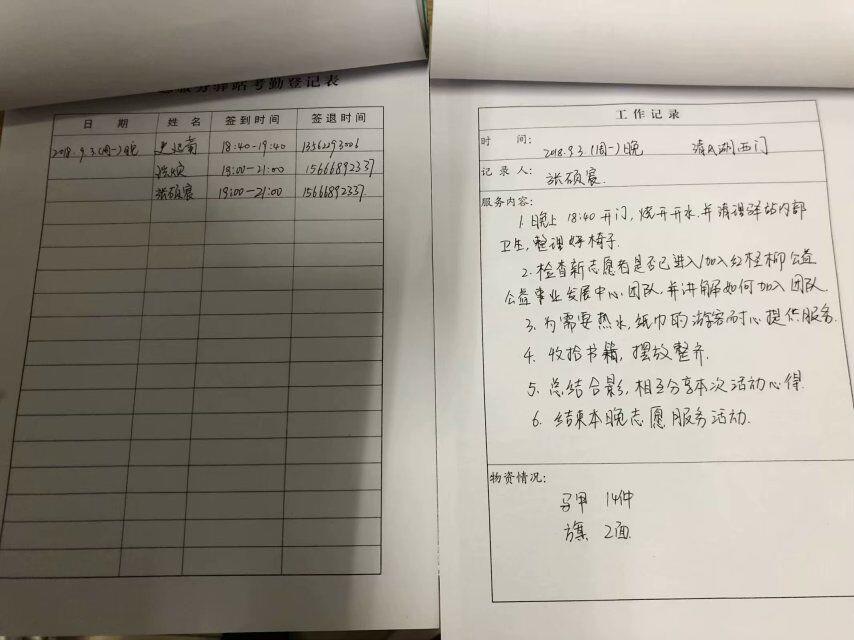 服务驿站考勤登记表
日 期 姓 名 签到时间 签退时间
2018.9.3.(周一)晚 18:40-19:40 13362293006
19:00-21:00 15666892337
张硕宸 19:00-21:00 15666892337.
工作记录
时 间: 2018.9.3 (周一)晚 湖西门
记录人: 张硕宸.
服务内容:
1. 晚上 18:40 开门, 烧开开水. 并清理驿站内部
卫生, 整理好椅子.
2. 检查新志愿者是否已进入/加入红柽柳公益
公益事业发展中心团队, 并讲解如何加入团队.
3. 为需要热水, 纸巾的游客耐心提供服务.
4. 收拾书籍, 摆放整齐.
5. 总结合影, 相互分享本次活动心得.
6. 结束本晚志愿服务活动.
物资情况:
马甲 14件
旗 2面